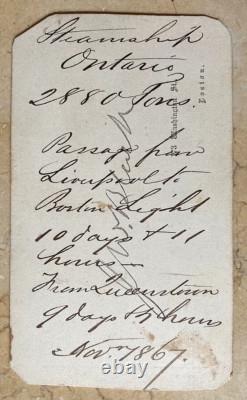 Steamship
Ontario
2880 Tons.
Passage from
Liverpool to
Boston Light
10 days & 11
hours —
From Queenstown
9 days 5 hours
Nov. 1867.
Washington St
Boston.